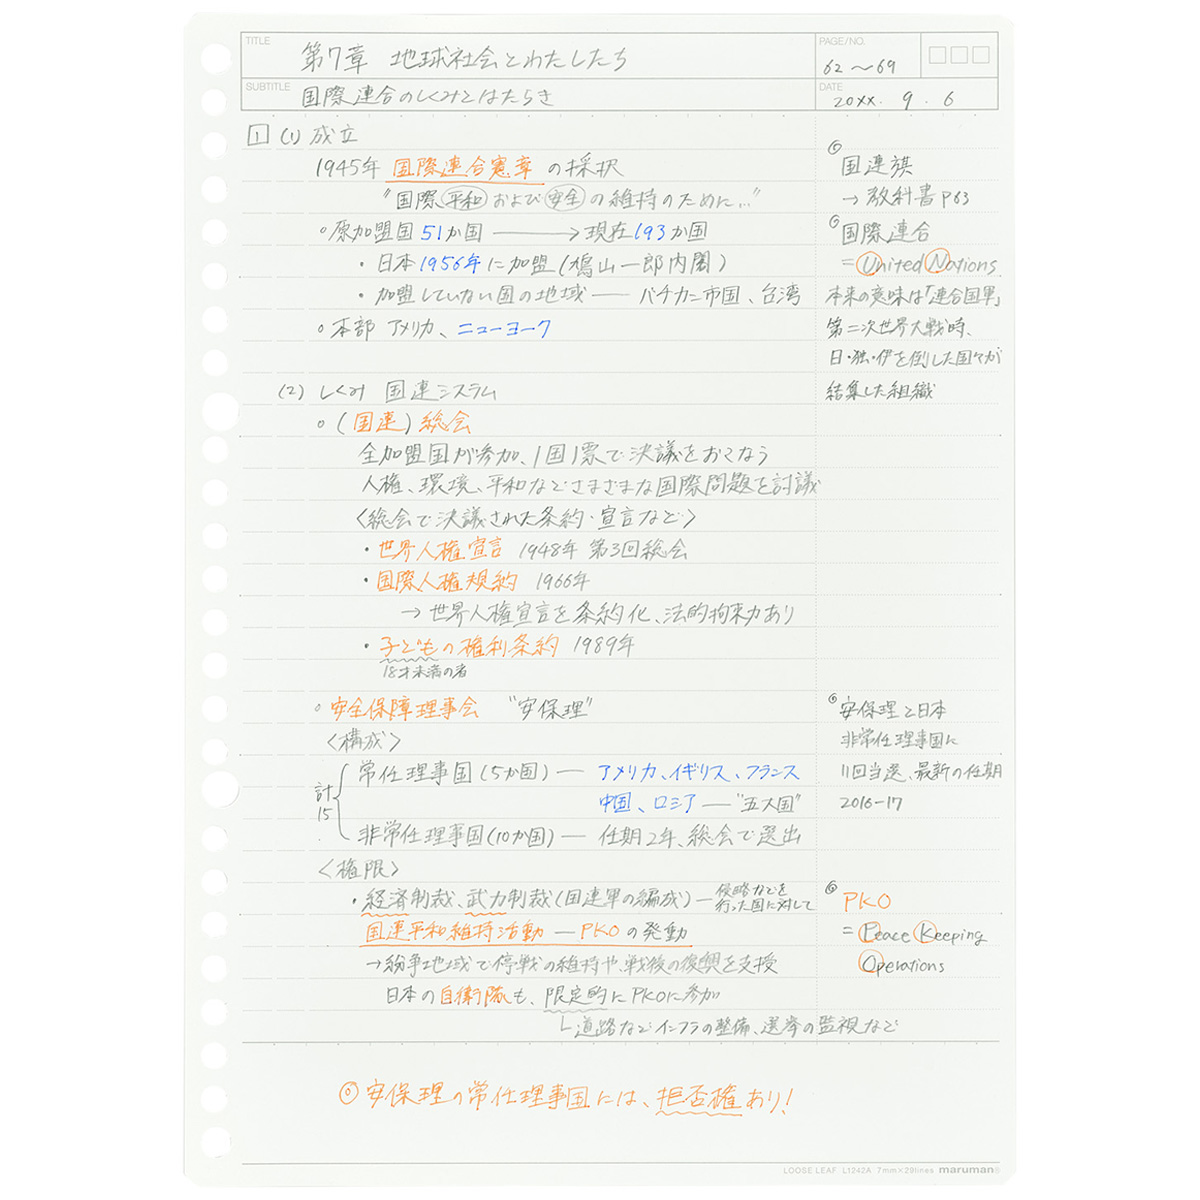 TITLE
第7章 地球社会とわたしたち
PAGE/NO.
62〜69
SUBTITLE
国際連合のしくみとはたらき
DATE
20XX. 9. 6
1 (1) 成立
1945年 国際連合憲章の採択
"国際平和および安全の維持のために…"
○原加盟国 51か国 → 現在193か国
・日本1956年に加盟(鳩山一郎内閣)
・加盟していない国の地域 ― バチカン市国、台湾
○本部 アメリカ、ニューヨーク
国連旗
→ 教科書P63
国際連合
= United Nations
本来の意味は「連合国軍」
第二次世界大戦時、
日・独・伊を倒した国々が
結集した組織
(2) しくみ 国連システム
○(国連)総会
全加盟国が参加、1国1票で決議をおこなう
人権、環境、平和などさまざまな国際問題を討議
〈総会で決議された条約・宣言など〉
・世界人権宣言 1948年 第3回総会
・国際人権規約 1966年
→世界人権宣言を条約化、法的拘束力あり
・子どもの権利条約 1989年
18才未満の者
○安全保障理事会 "安保理"
〈構成〉
計15
常任理事国(5か国) ― アメリカ、イギリス、フランス
中国、ロシア ― "五大国"
非常任理事国(10か国) ― 任期2年、総会で選出
安保理と日本
非常任理事国に
11回当選、最新の任期
2016-17
〈権限〉
・経済制裁、武力制裁(国連軍の編成) ― 侵略などを
行った国に対して
国連平和維持活動 ― PKOの発動
→紛争地域で停戦の維持や、戦後の復興を支援
日本の自衛隊も、限定的にPKOに参加
└道路などインフラの整備、選挙の監視など
PKO
= Peace Keeping
Operations
◎安保理の常任理事国には、拒否権あり!
LOOSE LEAF L1242A 7mm×29lines maruman®